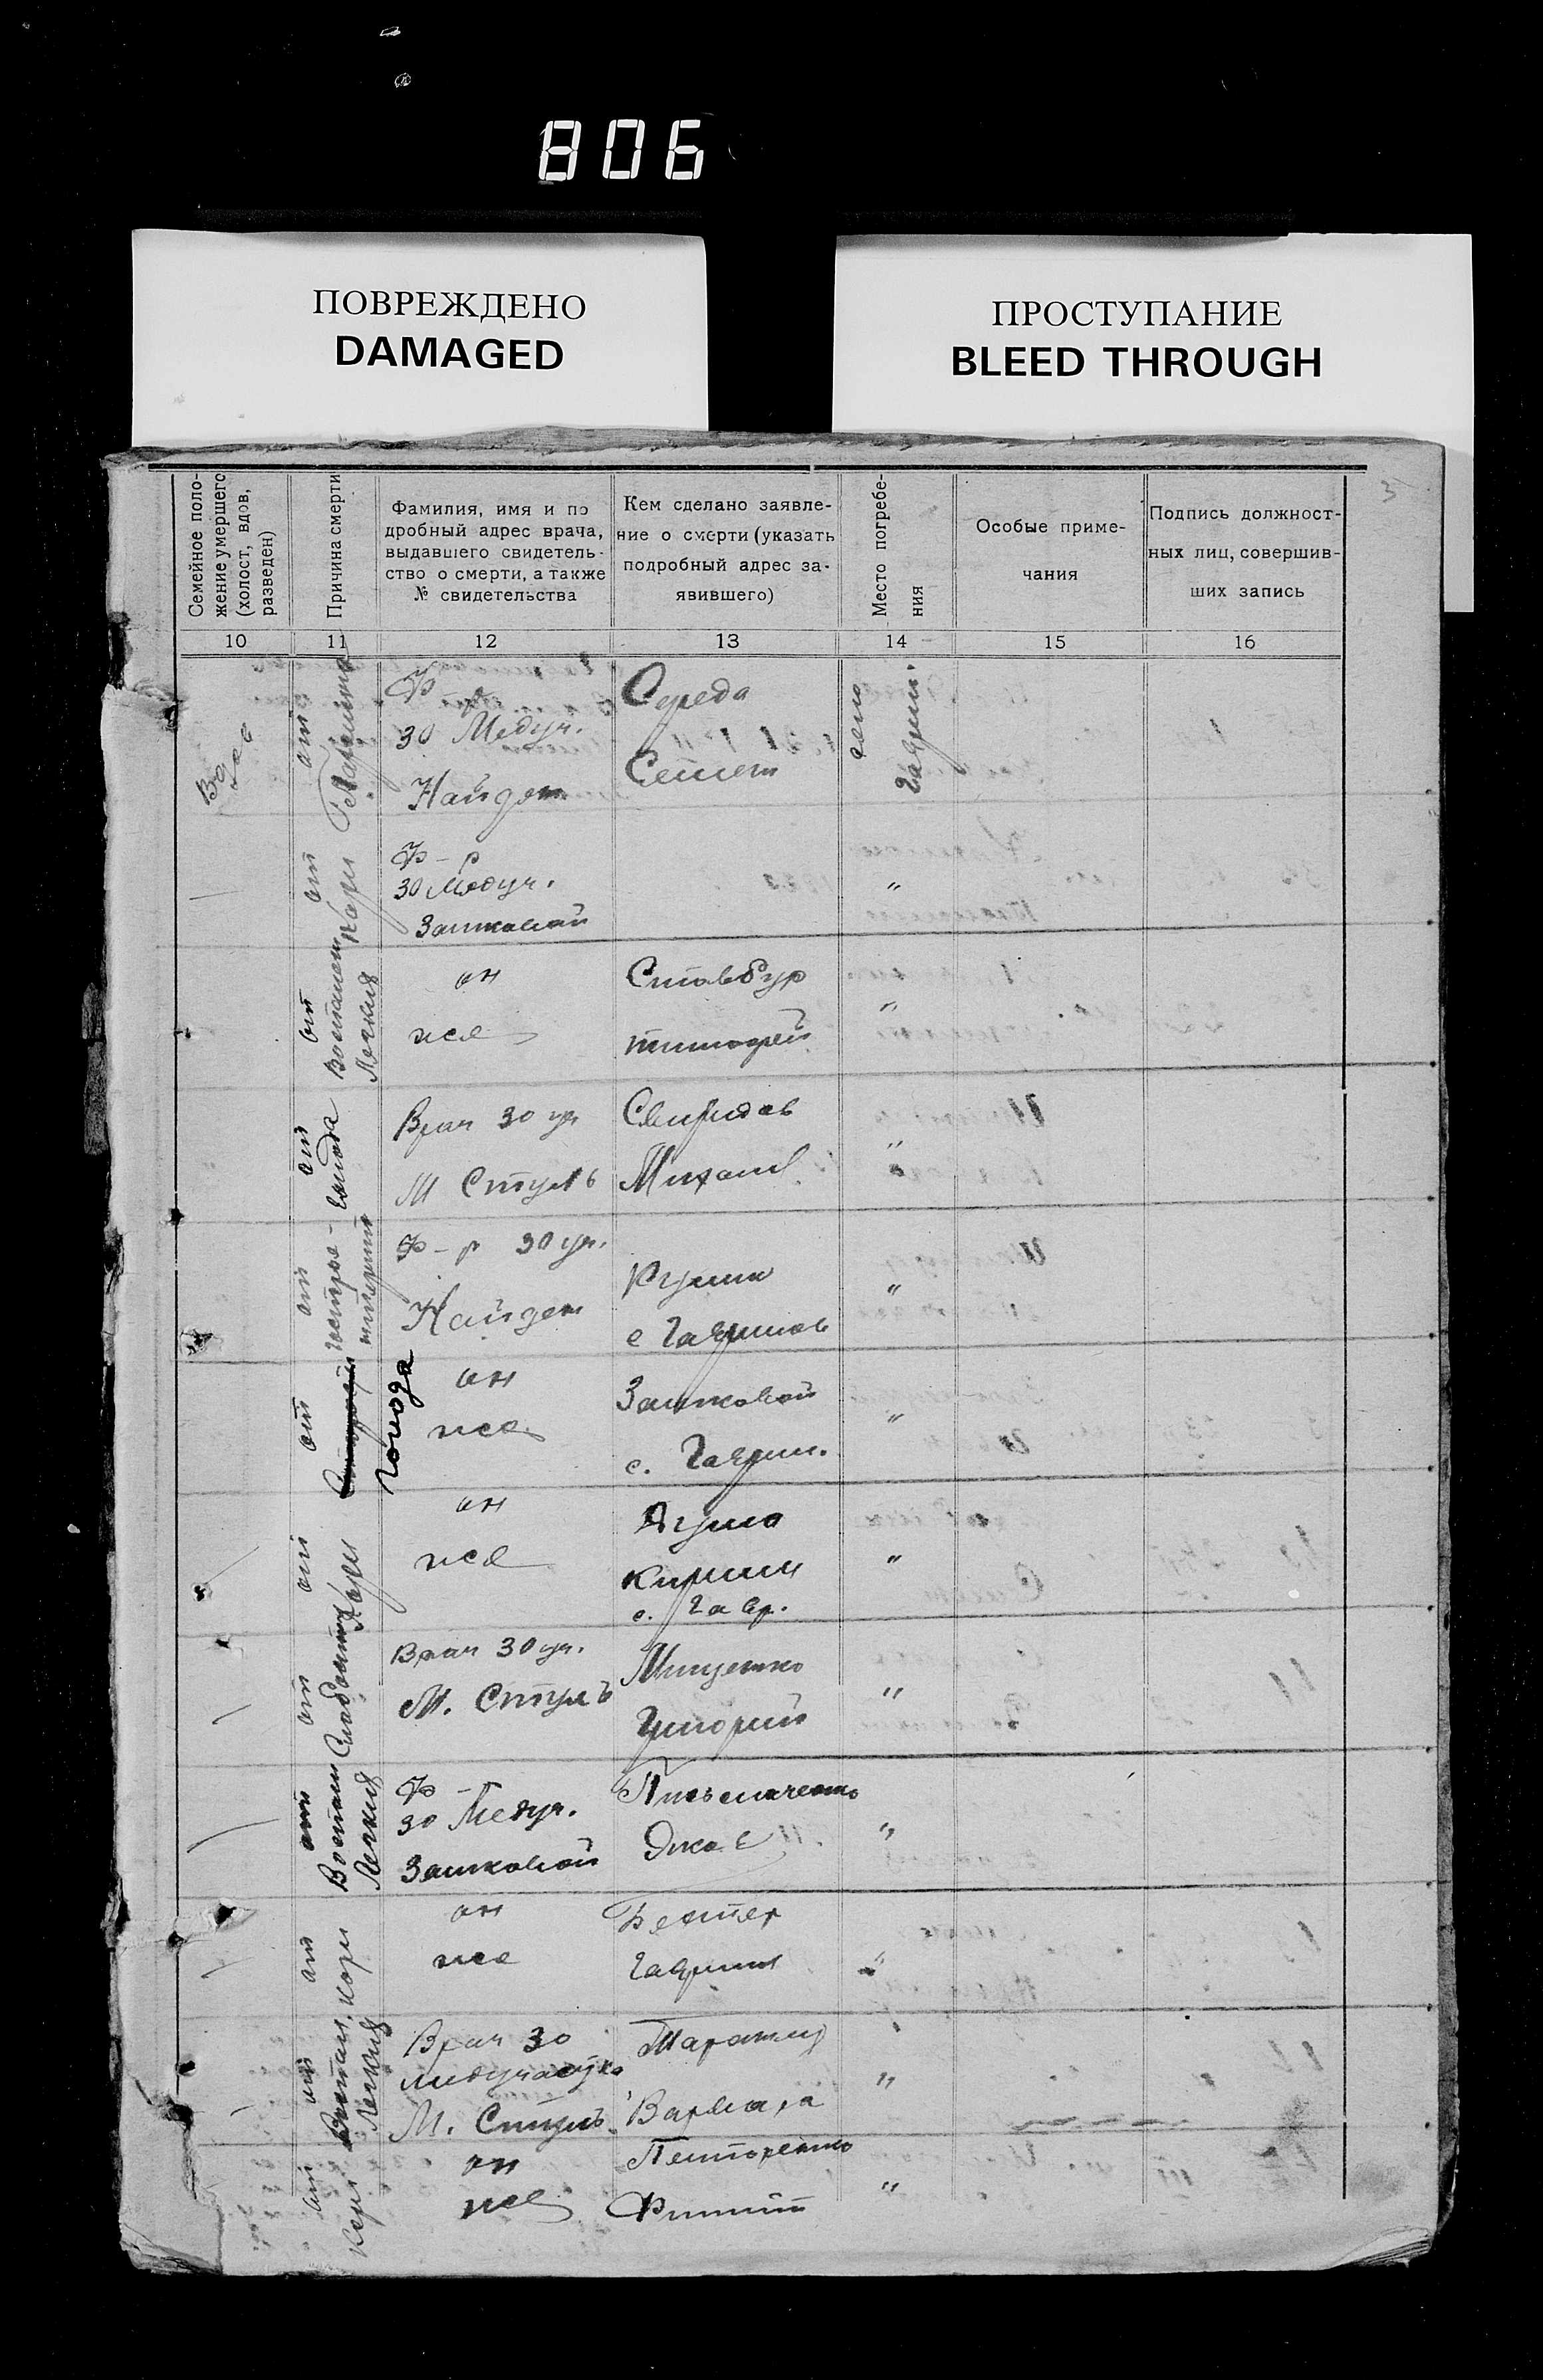 806
ПОВРЕЖДЕНО
DAMAGED
ПРОСТУПАНИЕ
BLEED THROUGH
3
Семейное поло-
жение умершего
(холост, вдов,
разведен)
Причина смерти
Фамилия, имя и по
дробный адрес врача,
выдавшего свидетель-
ство о смерти, а также
№ свидетельства
Кем сделано заявле-
ние о смерти (указать
подробный адрес за-
явившего)
Место погребе-
ния
Особые приме-
чания
Подпись должност-
ных лиц, совершив-
ших запись
10 11 12 13 14 15 16
от
Ф
30 Медуч.
Найден
Середа
Семен
село
Гаврил.
от
кори
Ф-р
30 Медуч.
Зашковой
"
от
Воспален
Легких
он
же
Ставбур
тимофей
"
от
голода
Врач 30 уч
М Стуль
Свиридов
Михаил
"
от
Ф-р 30 уч.
Найден
с Гаврилов
"
от
голода
он
же
Зашковой
с. Гаврил.
"
от
кори
он
же
кирилл
с. Гавр.
"
от
Слабости
Врач 30 уч.
М. Стуль
Мищенко
Григорий
"
от
Воспал
Легких
Ф-
30 Медуч.
Зашковой
Письмаченко
Яков
"
от
кори
он
же
Бехтер
Гаврил
"
от
Воспал.
Легких
Врач 30
медучастка
М. Стуль.
Варвара
"
от
Кори
он
же
Нестеренко
Филип
"